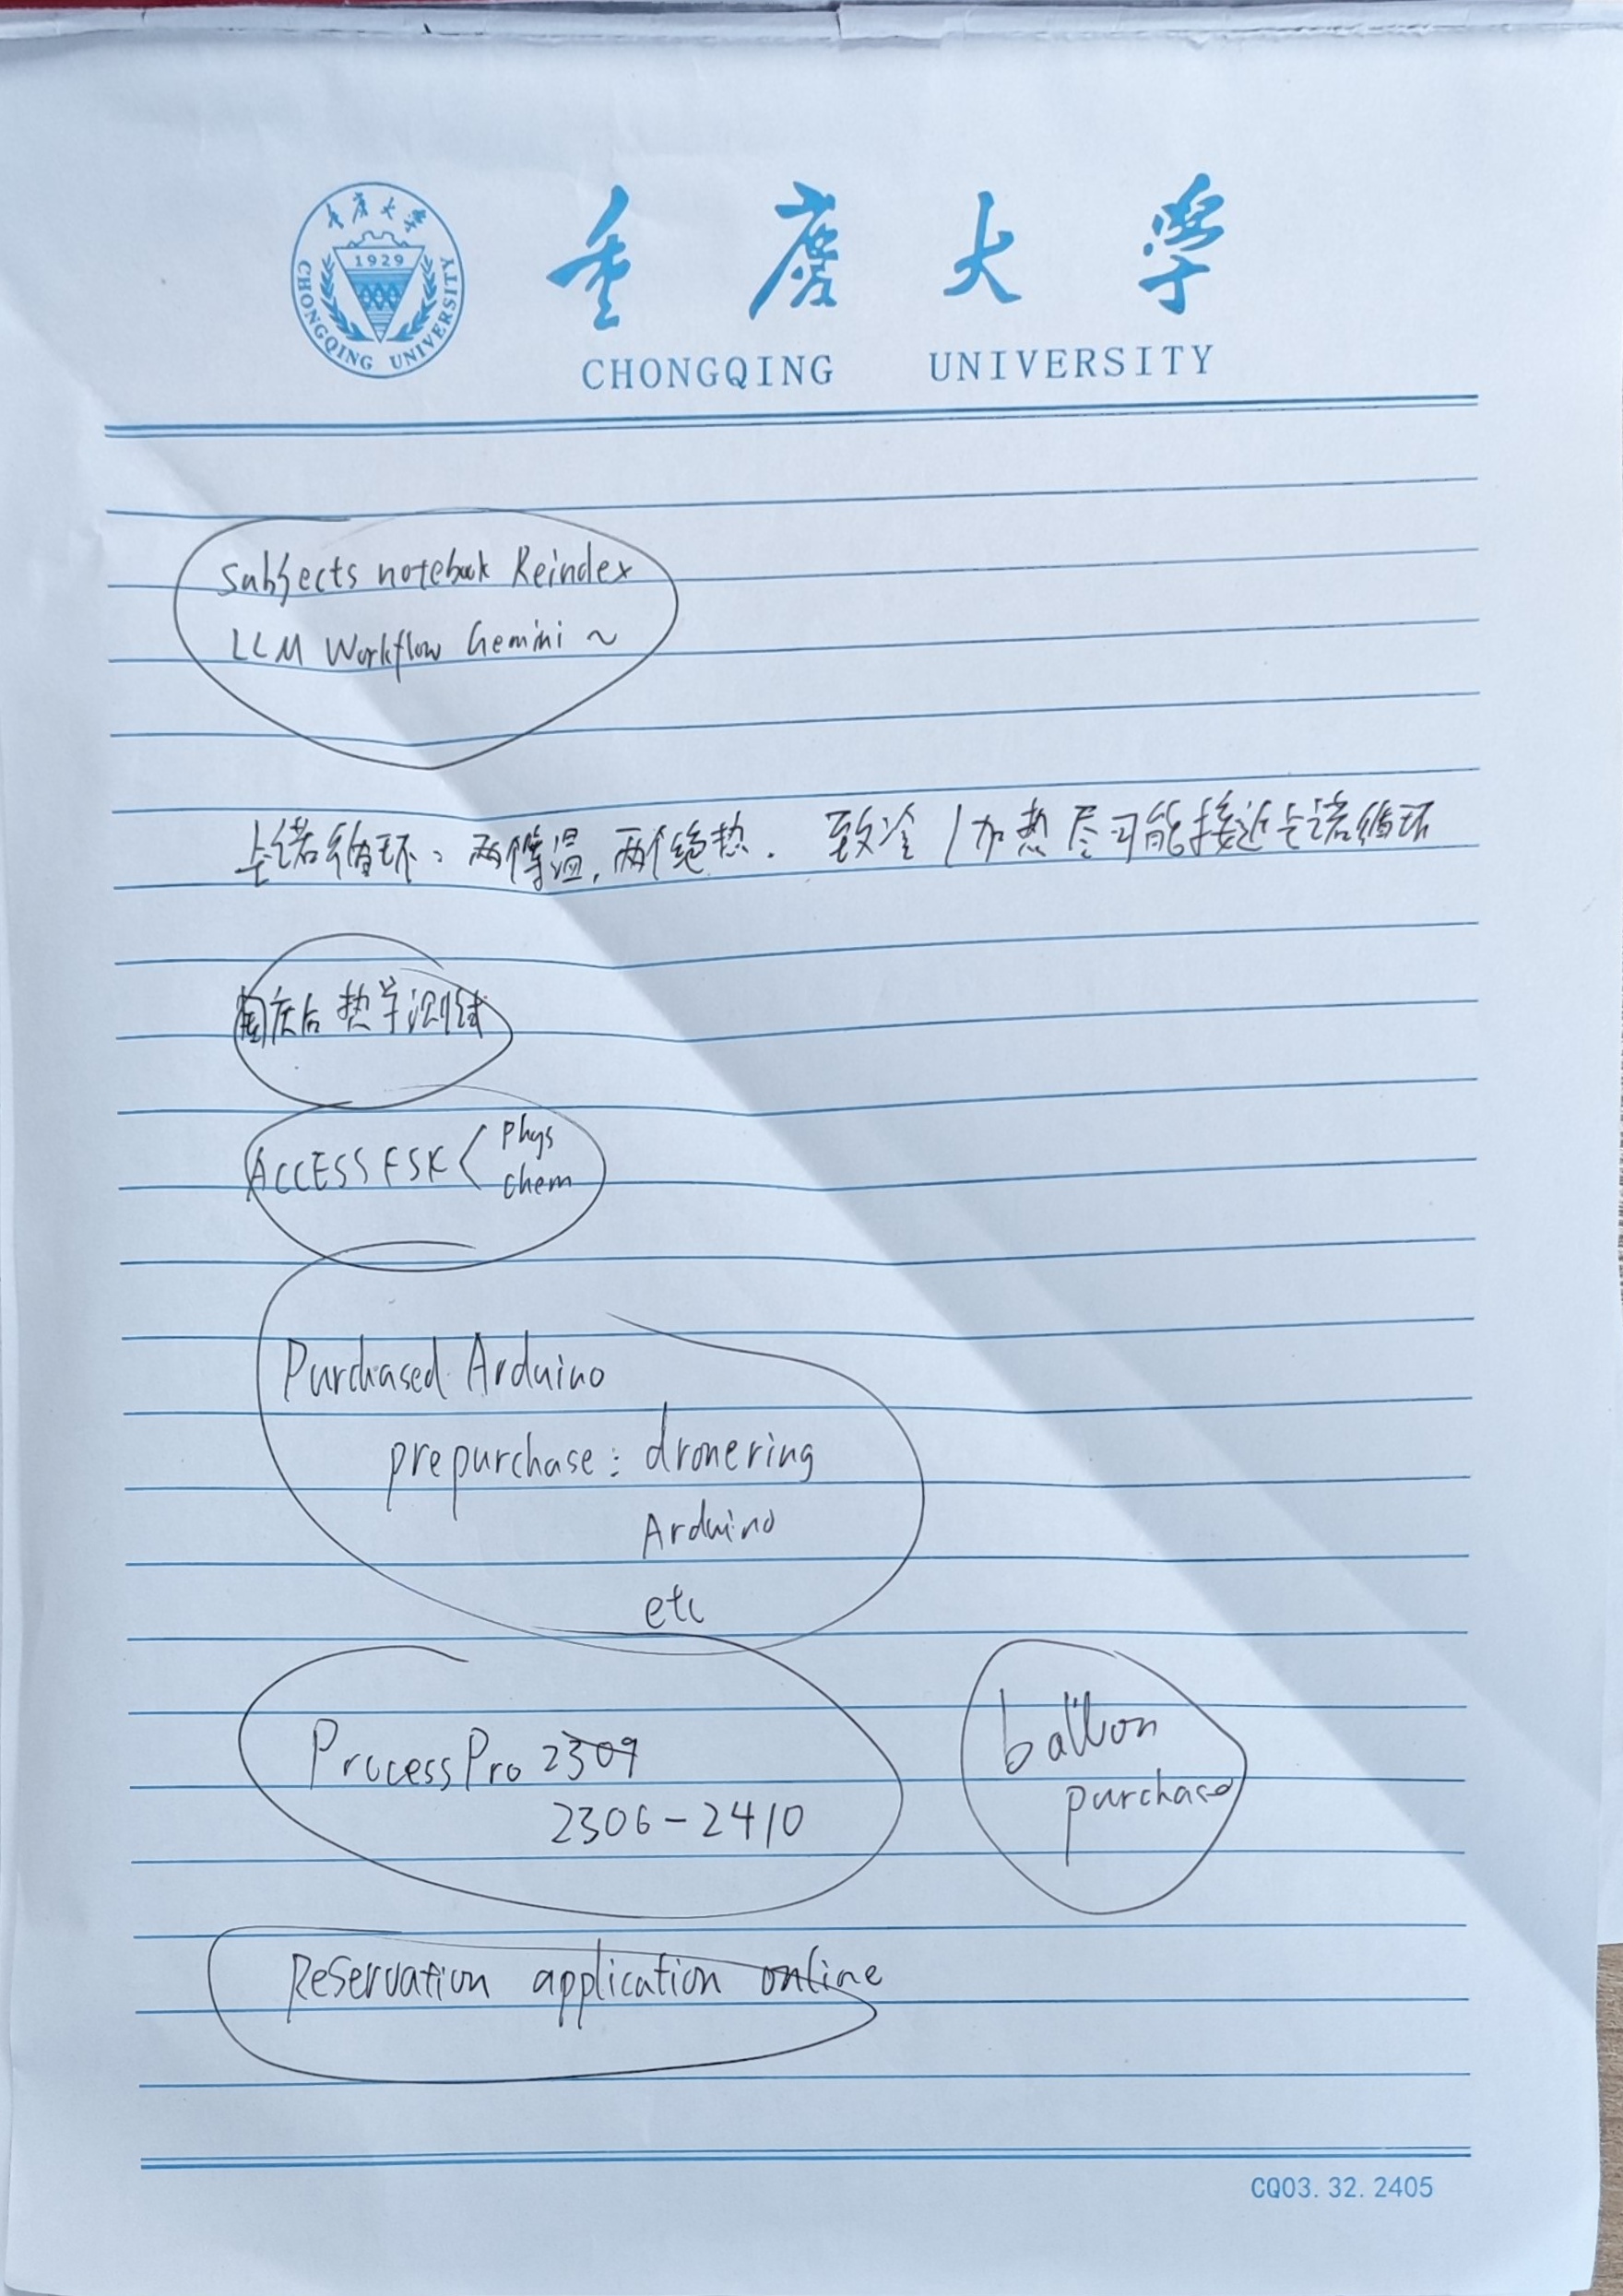 重庆大学
1929
CHONGQING UNIVERSITY
重庆大学
CHONGQING UNIVERSITY
Subjects notebook Reindex
LLM Workflow Gemini ~
卡诺循环:两个等温,两个绝热. 致冷/加热尽可能接近卡诺循环
国庆后热学测试
ACCESS FSK < Phys
chem
Purchased Arduino
prepurchase: dronering
Arduino
etc
ProcessPro 2309
2306-2410
balloon
purchase
Reservation application online
CQ03.32.2405